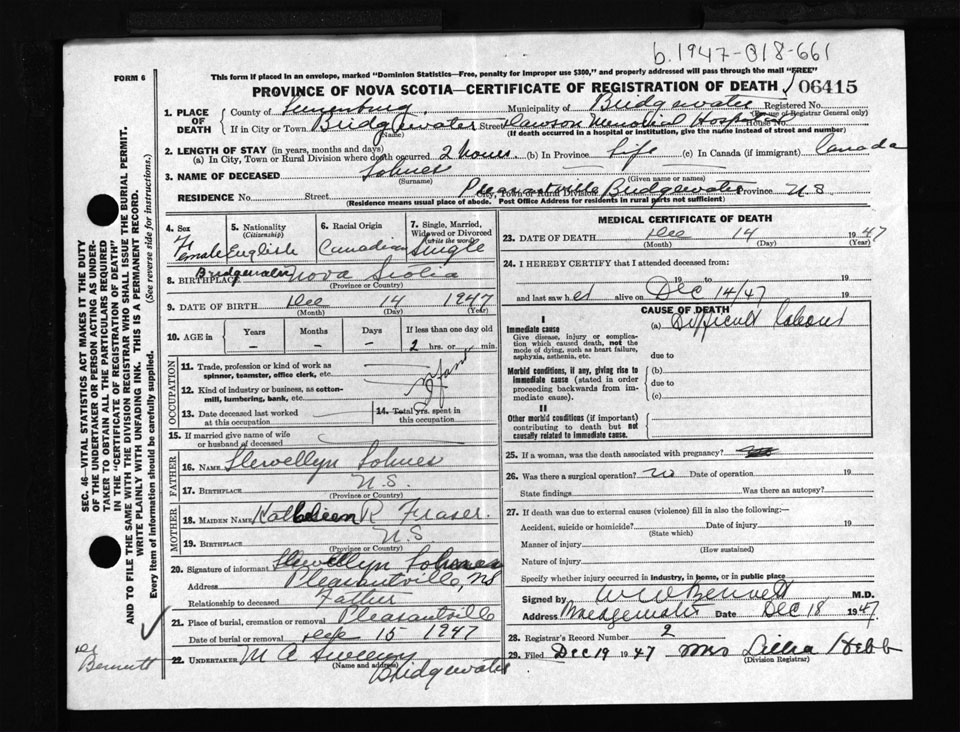 b.1947-018-661
FORM 6
This form if placed in an envelope, marked "Dominion Statistics—Free, penalty for improper use $300," and properly addressed will pass through the mail "FREE"
PROVINCE OF NOVA SCOTIA—CERTIFICATE OF REGISTRATION OF DEATH 06415
1. PLACE OF DEATH
County of Lunenburg Municipality of Bridgewater Registered No.
(For use of Registrar General only)
If in City or Town Bridgewater Street Dawson Memorial Hospital House No.
(Name) (If death occurred in a hospital or institution, give the name instead of street and number)
2. LENGTH OF STAY (in years, months and days)
(a) In City, Town or Rural Division where death occurred 2 hours. (b) In Province Life (c) In Canada (if immigrant) Canada
3. NAME OF DECEASED Lohnes
(Surname) (Given name or names)
RESIDENCE No. Street Pleasantville Bridgewater Province N.S.
City, Town or Rural Division
(Residence means usual place of abode. Post Office Address for residents in rural parts not sufficient)
4. Sex Female
5. Nationality (Citizenship) English
6. Racial Origin Canadian
7. Single, Married, Widowed or Divorced (write the word) Single
8. BIRTHPLACE Bridgewater Nova Scotia
(Province or Country)
9. DATE OF BIRTH Dec 14 1947
(Month) (Day) (Year)
10. AGE in Years Months Days If less than one day old
– – – 2 hrs. or min.
OCCUPATION
11. Trade, profession or kind of work as spinner, teamster, office clerk, etc.
Infant
12. Kind of industry or business, as cotton-mill, lumbering, bank, etc.
13. Date deceased last worked at this occupation
14. Total yrs. spent in this occupation
15. If married give name of wife or husband of deceased
FATHER
16. Name Llewellyn Lohnes
17. BIRTHPLACE N.S.
(Province or Country)
MOTHER
18. MAIDEN NAME Kathleen R Fraser.
19. BIRTHPLACE N.S
(Province or Country)
20. Signature of informant Llewellyn Lohnes
Address Pleasantville, NS
Relationship to deceased Father
21. Place of burial, cremation or removal Pleasantville
Date of burial or removal 15 1947
22. UNDERTAKER M A Sweeny
(Name and address) Bridgewater
MEDICAL CERTIFICATE OF DEATH
23. DATE OF DEATH Dec 14 1947
(Month) (Day) (Year)
24. I HEREBY CERTIFY that I attended deceased from:
19 to 19
and last saw her alive on Dec 14/47 19
CAUSE OF DEATH
I
Immediate cause (a) Difficult labour
Give disease, injury or complication which caused death, not the mode of dying, such as heart failure, asphyxia, asthenia, etc.
due to
Morbid conditions, if any, giving rise to immediate cause (stated in order proceeding backwards from immediate cause).
(b)
due to
(c)
II
Other morbid conditions (if important) contributing to death but not causally related to immediate cause.
25. If a woman, was the death associated with pregnancy?
26. Was there a surgical operation? no Date of operation 19
State findings Was there an autopsy?
27. If death was due to external causes (violence) fill in also the following:—
Accident, suicide or homicide? Date of injury 19
(State which)
Manner of injury
(How sustained)
Nature of injury
Specify whether injury occurred in industry, in home, or in public place
Signed by W W Bennett M.D.
Address Bridgewater Date Dec 18 1947
28. Registrar's Record Number 2
29. Filed Dec 19 1947 Mrs Hebb
(Division Registrar)
SEC. 46—VITAL STATISTICS ACT MAKES IT THE DUTY
OF THE UNDERTAKER OR PERSON ACTING AS UNDER-
TAKER TO OBTAIN ALL THE PARTICULARS REQUIRED
IN THE "CERTIFICATE OF REGISTRATION OF DEATH"
AND TO FILE THE SAME WITH THE DIVISION REGISTRAR WHO SHALL ISSUE THE BURIAL PERMIT.
WRITE PLAINLY WITH UNFADING INK. THIS IS A PERMANENT RECORD.
Every item of information should be carefully supplied. (See reverse side for instructions.)
Bennett